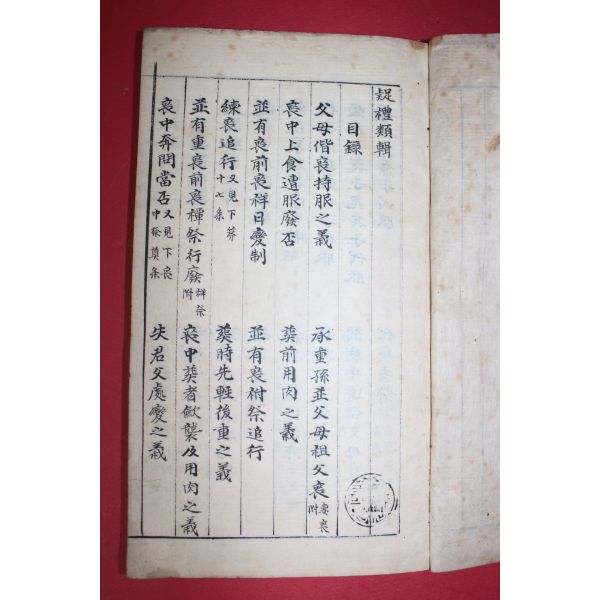 疑禮類輯
目錄
父母偕喪持服之義 承重孫並父母祖父喪妻喪附
喪中上食遭服廢否 葬前用肉之義
並有喪前喪祥日變制 並有喪祔祭追行
練喪追行又見下葬十七条 葬時先輕後重之義
並有重喪前喪禫祭行廢祥祭附 喪中葬者斂襲及用肉之義
喪中奔問當否又見下喪中祭奠条 失君父處變之義